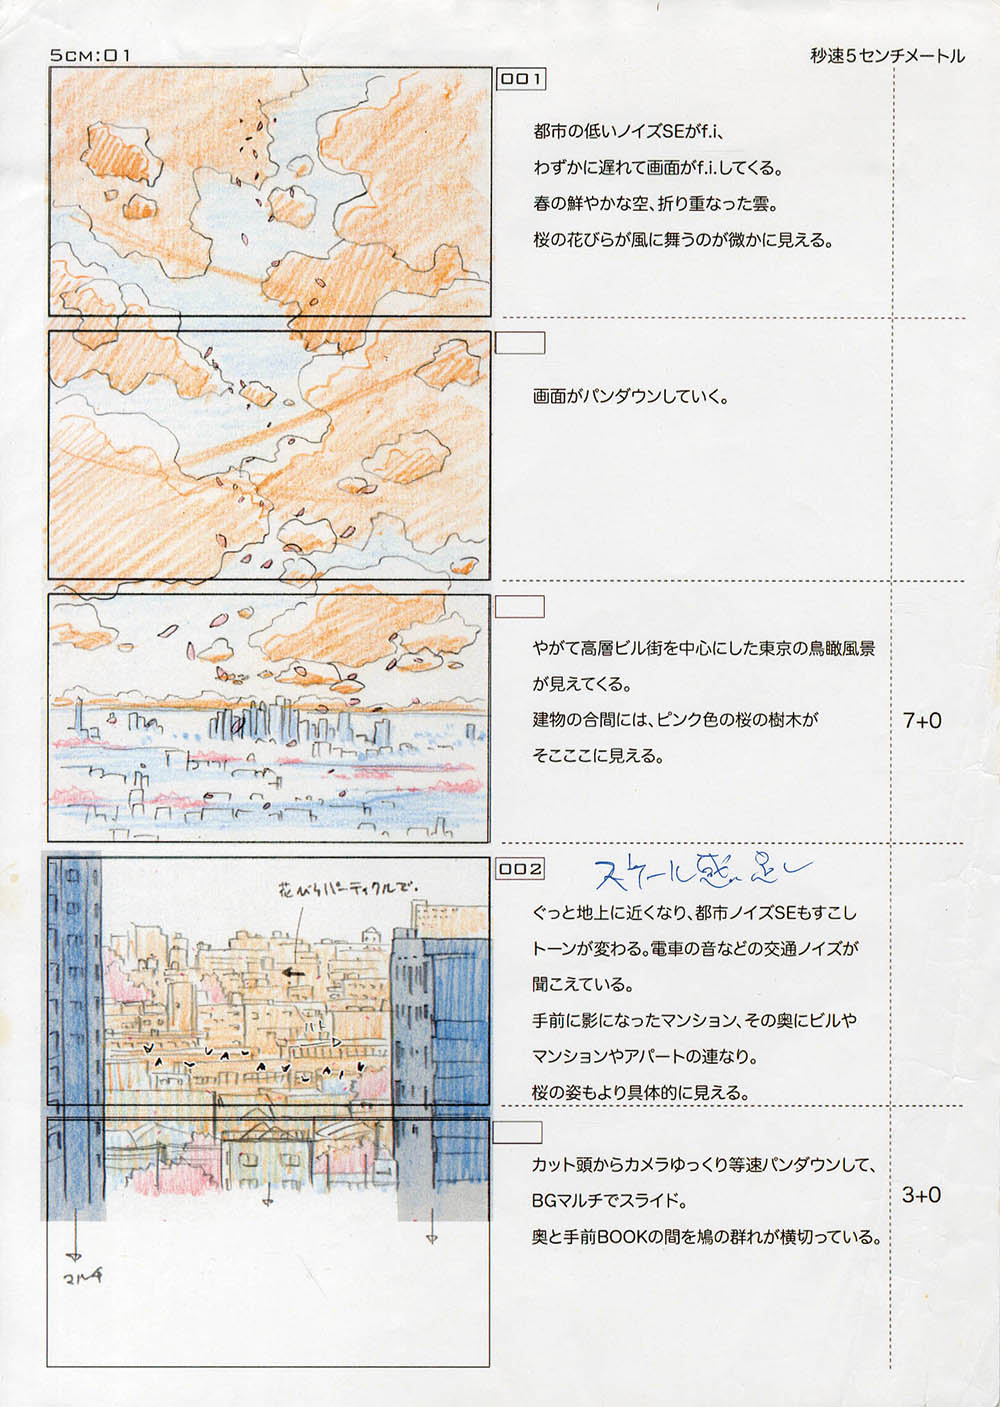 5CM:01
秒速5センチメートル
001
都市の低いノイズSEがf.i、
わずかに遅れて画面がf.i.してくる。
春の鮮やかな空、折り重なった雲。
桜の花びらが風に舞うのが微かに見える。
画面がパンダウンしていく。
やがて高層ビル街を中心にした東京の鳥瞰風景
が見えてくる。
建物の合間には、ピンク色の桜の樹木が
そこここに見える。
7+0
002
スケール感 足し
花びらパーティクルで。
ぐっと地上に近くなり、都市ノイズSEもすこし
トーンが変わる。電車の音などの交通ノイズが
聞こえている。
手前に影になったマンション、その奥にビルや
マンションやアパートの連なり。
桜の姿もより具体的に見える。
ハト
カット頭からカメラゆっくり等速パンダウンして、
BGマルチでスライド。
奥と手前BOOKの間を鳩の群れが横切っている。
3+0
マルチ